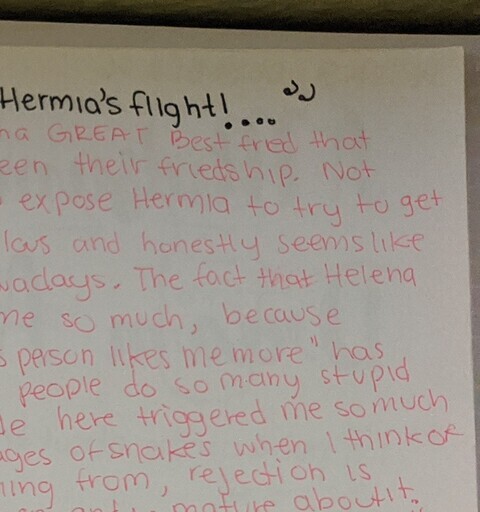 Hermia's flight!....
na GREAT Best fred that
een their friedship. Not
expose Hermia to try to get
lous and honestly seems like
wadays. The fact that Helena
me so much, because
s person likes me more" has
people do so many stupid
le here triggered me so much
ages of snakes when I think of
ning from, rejection is
mature about it.